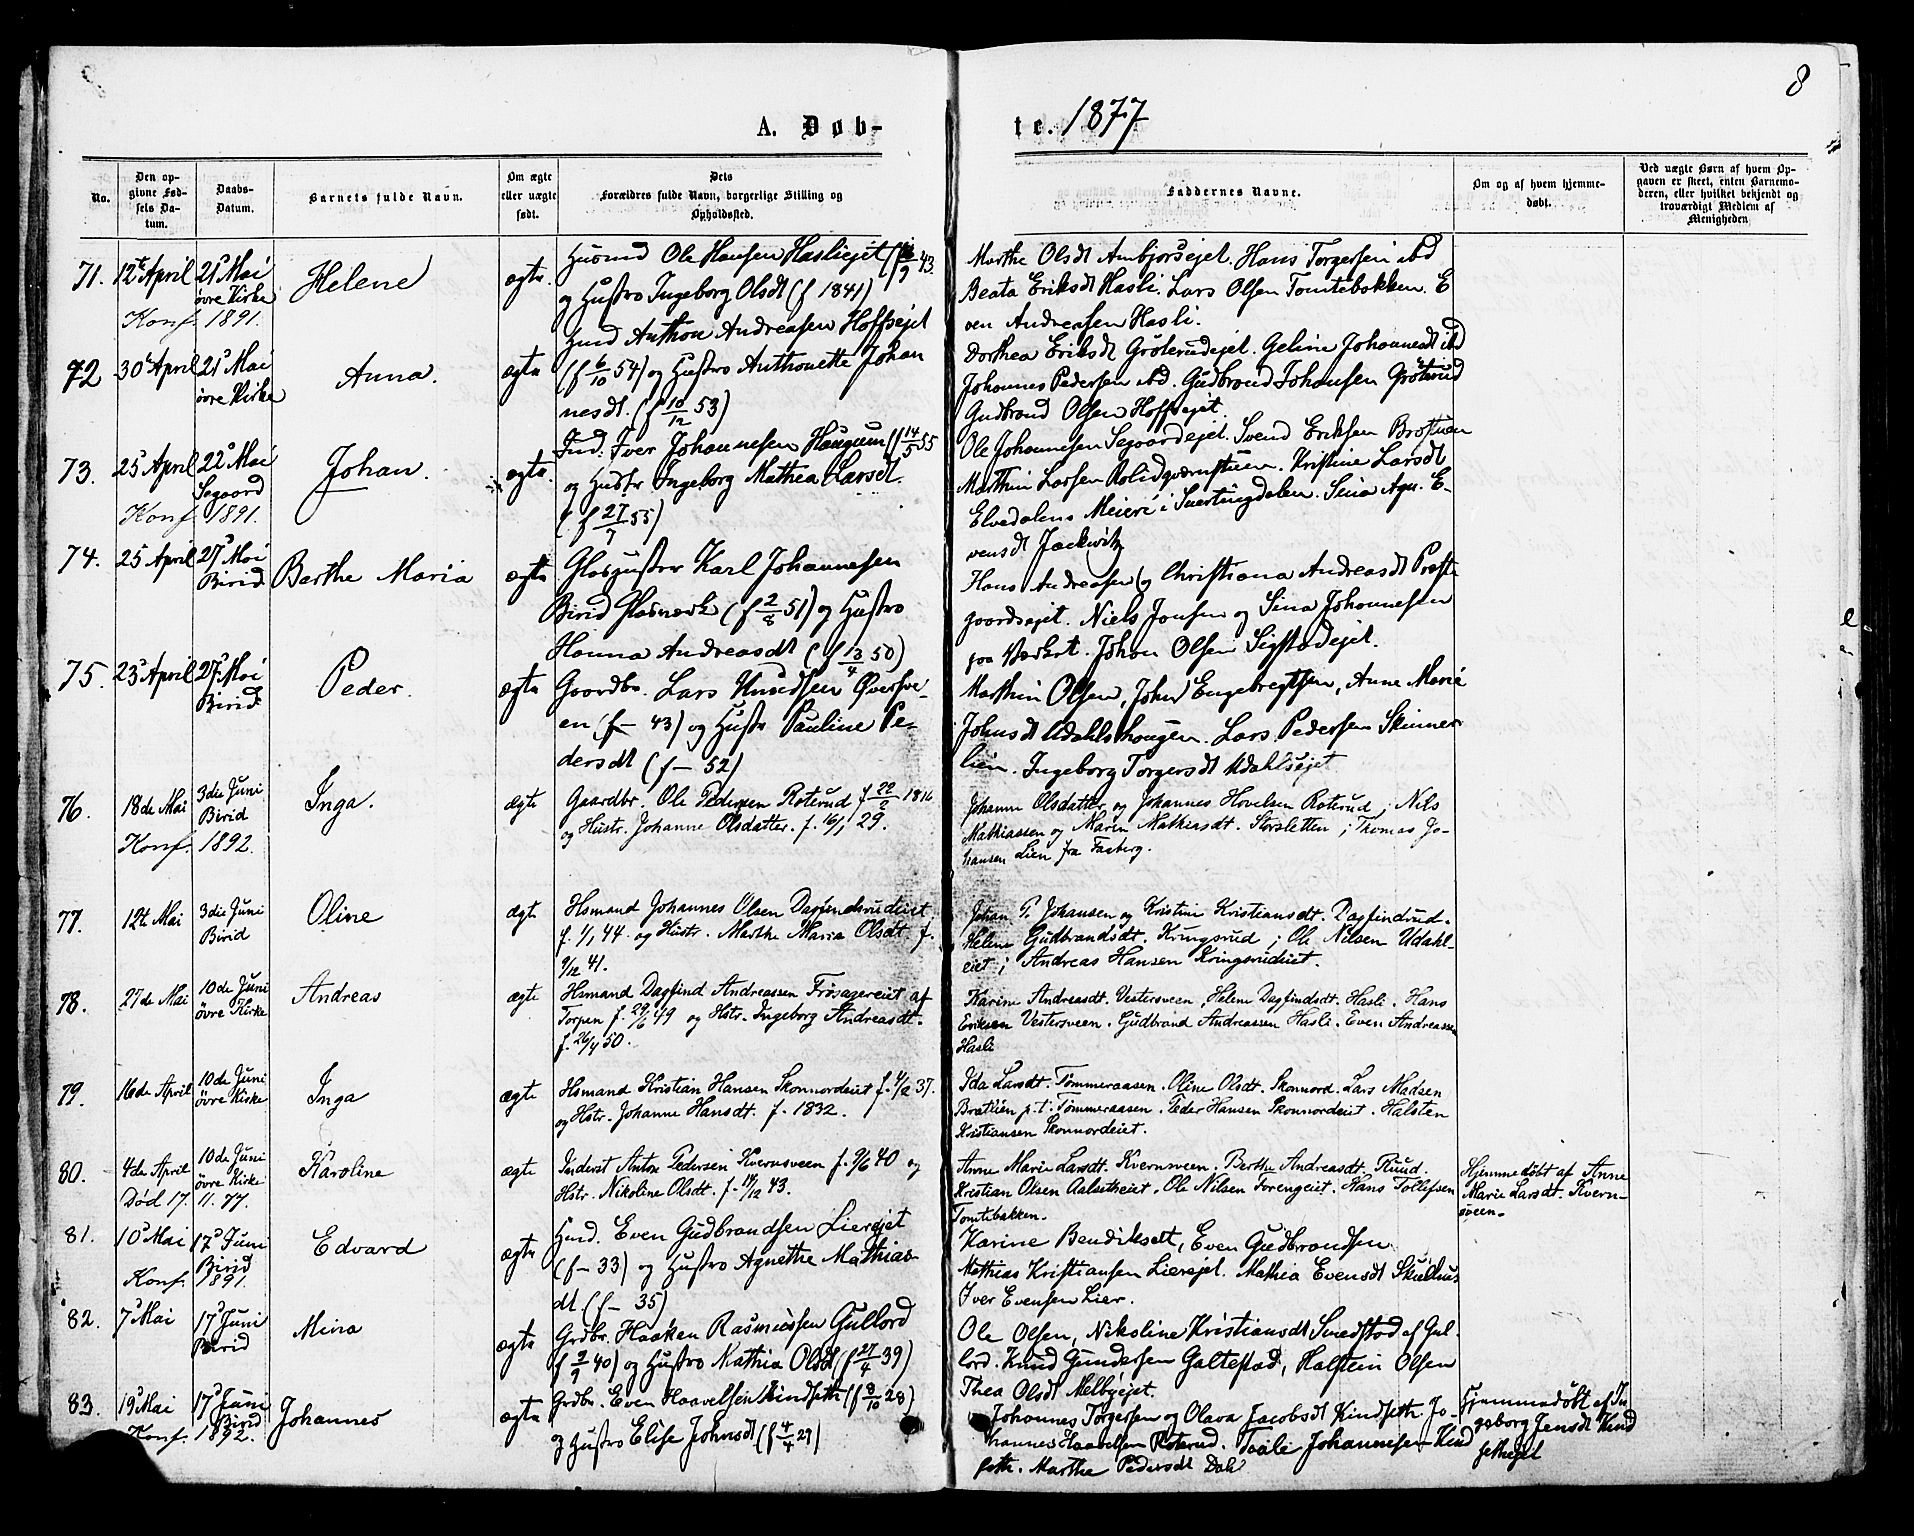 8
A. Døb-
te. 1877
No.
Den op-
givne Fød-
sels Da-
tum.
Daabs-
Datum.
Barnets fulde Navn.
Om ægte
eller uægte
født.
Dets
Forældres fulde Navn, borgerlige Stilling og
Opholdsted.
Faddernes Navne.
Om og af hvem hjemme-
døbt.
Ved uægte Børn af hvem Op-
gaven er skeet, enten Barnemo-
deren, eller hvilket bekjendt og
troværdigt Medlem af
Menigheden
71. 12te April 21s Mai Helene ægte.
øvre Kirke
Konf. 1891.
Husmd Ole Hansen Hasliejet 43.
og Hustro Ingeborg Olsdt (f 1841)
Marthe Olsdt Ambjørsejet. Hans Torgersen ibd
Beata Eriksdt Hasli. Lars Olsen Tomtebakken. E
ven Andreasen Hasli.
72 30te April 21s Mai Anna. ægte
øvre Kirke
Hmd Anthon Andreasen Hoffsejet
(f 6/10 54) og Hustro Anthonette Johan
nesdt. (f 10/12 53)
Dorthea Eriksdt Gröterudejet. Geline Johannesdt ibd
Johannes Pedersen ibd. Gudbrand Johansen Gröterud
Gudbrand Olsen Hoffsejet.
73. 25 April 22s Mai Johan. ægte.
Segaard
Konf. 1891.
Ind. Iver Johannesen Haugum (f 14/5 55
og Hustr Ingeborg Mathea Larsdt.
(f 27/7 55)
Ole Johannesen Segaardejet. Svend Eriksen
Marthin Larsen Kristine Larsdt
Elvedalens Meieri i Snertingdalen. Sina Agn. E-
vensdt
74. 25 April 27s Mai Berthe Maria ægte
Birid
Glaspuster Karl Johannesen
Birid Glasværk (f 2/8 51) og Hustro
Hanna Andreasdt (f 13/4 50)
Hans Andreasen og Christiana Andreasdt Præste
gaardsejet. Niels Jonsen og Sina Johannesen
paa Værket. Johan Olsen Sigstadejet.
75. 23s April 27s Mai Peder. ægte
Birid
Gaardbr. Lars Knudsen Øversve-
en (f— 43) og Hustr Pauline Pe-
dersdt (f— 52)
Marthin Olsen, John Engebregtsen, Anne Marie
Johnsdt Udahlshaugen. Lars Pedersen Skinner
lien. Ingeborg Torgersdt Udahlsejet
76. 18de Mai 3die Juni Inga. ægte
Birid
Konf. 1892.
Gaardbr. Ole Pedersen Roterud f 22/2 1816
og Hustr. Johanne Olsdatter. f. 16/1 29.
Johanne Olsdatter og Johannes Hovelsen Roterud; Nils
Mathiassen og Maren Mathiasdt. Storsletten; Thomas Jo-
hansen Lien fra Faaberg.
77. 12te Mai 3die Juni Oline ægte
Birid
Hsmand Johannes Olsen Dagfindsrudeiet
f. 1/1 44 og Hustr. Marthe Maria Olsdt f.
9/12 41.
Johan P. Johansen og Kristine Kristiansdt. Dagfindrud.
Helene Gudbrandsdt. Kringsrud; Ole Nilsen Udahl-
eiet; Andreas Hansen Kringsrudeiet.
78. 27de Mai 10de Juni Andreas ægte
øvre Kirke
Hsmand Dagfind Andreassen Frøsagereiet af
Torpen f. 29/6 49 og Hstr. Ingeborg Andreasdt.
f. 26/4 50.
Karine Andreasdt. Vestersveen, Helene Dagfindsdt. Hasli. Hans
Eriksen Vestersveen. Gudbrand Andreassen Hasli. Even Andreassen
Hasli
79. 16de April 10de Juni Inga ægte
øvre Kirke
Hsmand Kristian Hansen Skonnordeiet f. 4/2 37.
og Hstr. Johanne Hansdt. f. 1832.
Ida Larsdt. Tømmeraasen. Oline Olsdt. Skonnord. Lars Madsen
Bratlien p.t. Tømmeraasen. Peder Hansen Skonnordeiet. Halsten
Kristiansen Skonnordeiet.
80. 4de April 10de Juni Karoline ægte
øvre Kirke
Død 17. 11. 77.
Inderst Anton Pedersen Kvernsveen f. 9/6 40 og
Hstr. Nikoline Olsdt. f. 14/12 43.
Anne Marie Larsdt. Kvernsveen. Berthe Andreasdt. Ruud.
Kristian Olsen Aalsetheiet. Ole Nilsen Forengeiet. Hans Tollefsen
Tomtebakken.
Hjemmedøbt af Anne
Marie Larsdt. Kvern-
sveen.
81. 10s Mai 17s Juni Edvard ægte
Birid
Konf. 1891.
Hmd. Even Gudbrandsen Liersejet
(f— 33) og Hustro Agnethe Mathias
dt (f— 35)
Karine Bendiksdt, Even Gudbrandsen
Mathias Kristiansen Liersejet. Mathia Evensdt
Iver Evensen Lier.
82. 7s Mai 17s Juni Mina ægte
Birid
Grdbr. Haaken Rasmussen Gullord
f 2/9 40) og Hustro Mathia Olsdt (f 27/4 39)
Ole Olsen, Nikoline Kristiansdt Smedstad af Gul-
lord. Knud Gundersen Galtestad, Halstein Olsen
Thea Olsdt Melbyejet.
83. 19s Mai 17s Juni Johannes ægte
Birid
Konf. 1892.
Grdbr. Even Haavelsen Kindseth (f 8/10 28)
og Hustro Elise Johnsdt (f 4/4 29)
Johannes Torgersen og Olava Jacobsdt Kindseth. Jo-
hannes Haavelsen Roterud. Taale Johannesen Kind
seth. Marthe Pedersdt Dahl
Hjemmedøbt af In-
geborg Jensdt Kind
sethejet